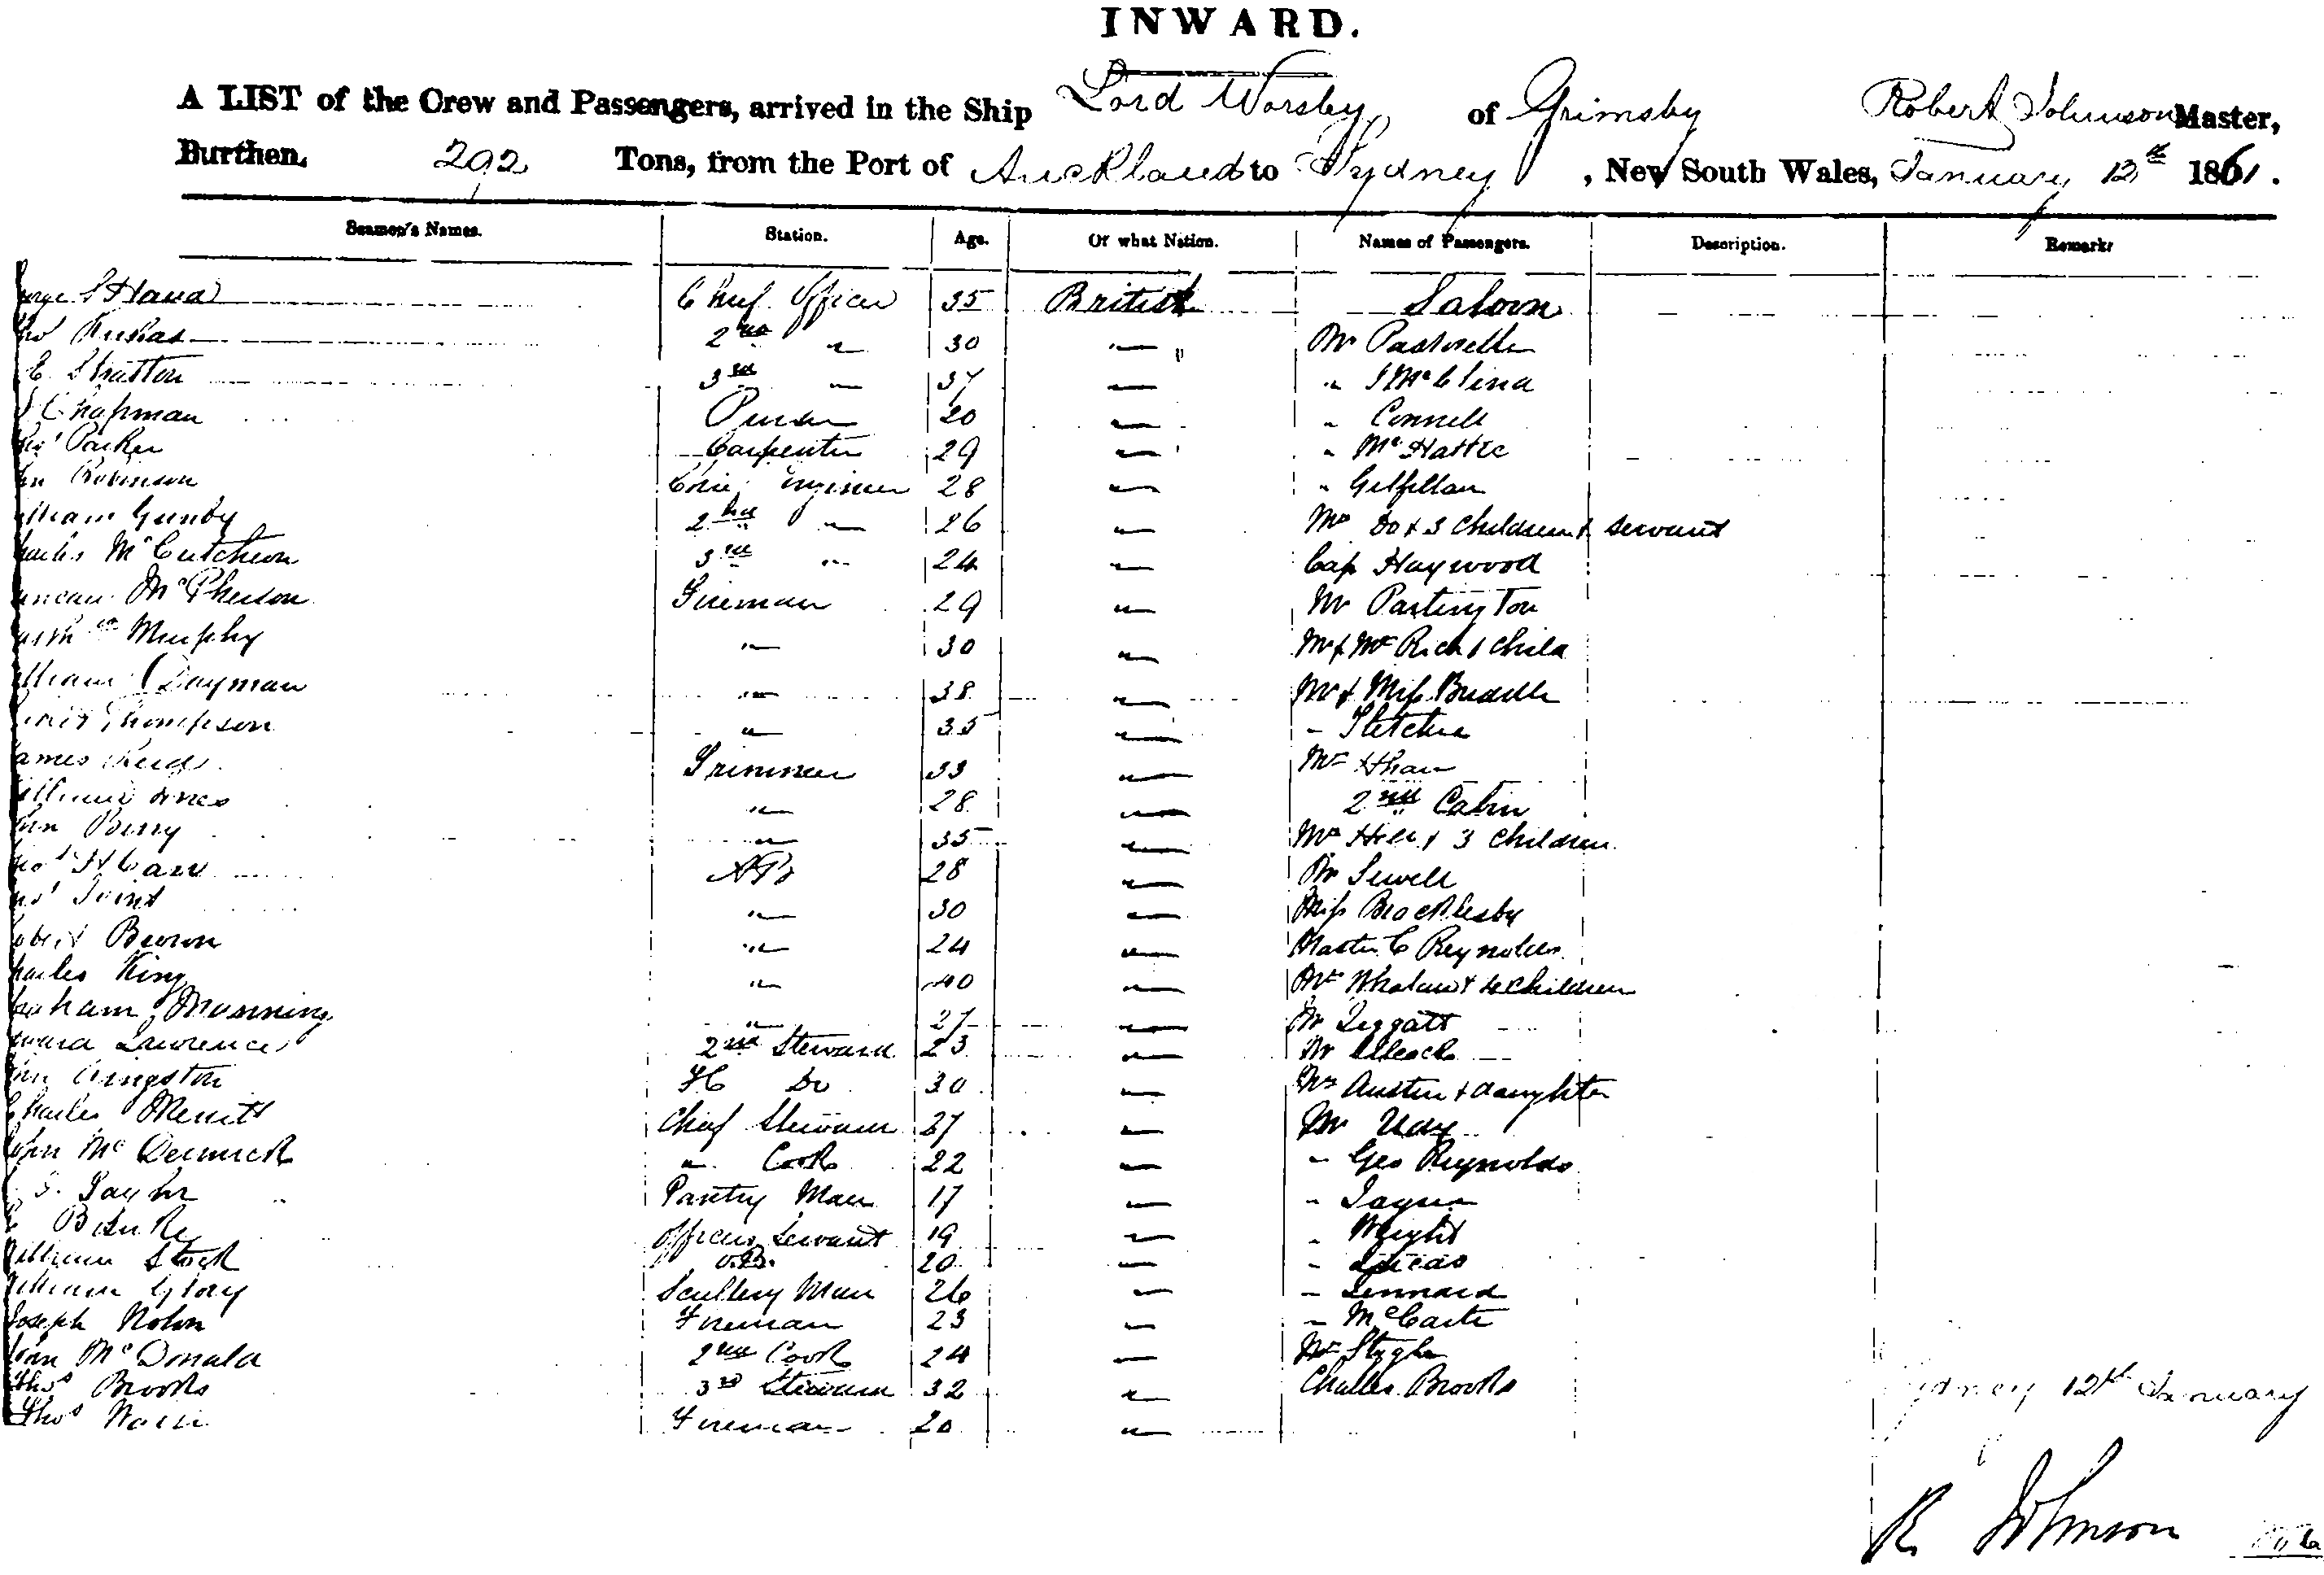 INWARD.
A LIST of the Crew and Passengers, arrived in the Ship Lord Worsley of Grimsby Robert Johnson Master,
Burthen, 292 Tons, from the Port of Auckland to Sydney, New South Wales, January 12th 1861.
Seamen's Names. Station. Age. Of what Nation. Names of Passengers. Description. Remarks
Chief Officer 35 British Saloon
2nd " 30 " Mr
E. Stratton 3rd " 37 "
Chapman Purser 20 " " Connell
Parker Carpenter 29 " " McHattie
Robinson Chief Engineer 28 " " Gilfillan
Gunby 2nd " 26 " Mrs Do & 3 children & servant
McCutcheon 3rd " 24 " Cap Haywood
McPherson Fireman 29 " Mr Partington
Murphy " 30 " Mr & Mrs Rich & Child
Dayman " 38 " Mr & Miss Buddle
Thompson " 35 " " Fletcher
James Reid Trimmer 33 "
" 28 " 2nd Cabin
Berry " 35 " Mrs Hill & 3 children
AB 28 " Mr Sewell
" 30 " Miss Brocklesby
Robert Brown " 24 " Master C Reynolds
Charles King " 40 " Mrs & 4 children
Manning " 27 " Mr Leggatt
Lawrence 2nd Steward 23 " Mr
Kingston Do 30 " Mrs Austin & daughter
Charles Merritt Chief Steward 27 " Mr Udy
John McDermick " Cook 22 " " Geo Reynolds
Taylor Pantry Man 17 "
Burke Officers Servant 19 " " Wright
William Stock O.S. 20 " " Lucas
William Glory Scullery Man 26 " " Lennard
Joseph Nolan Fireman 23 "
John McDonald 2nd Cook 24 " Mr
Thos Brooks 3rd Steward 32 " Charles Brooks
Thos Fireman 20 "
Sydney 12th January
R Johnson